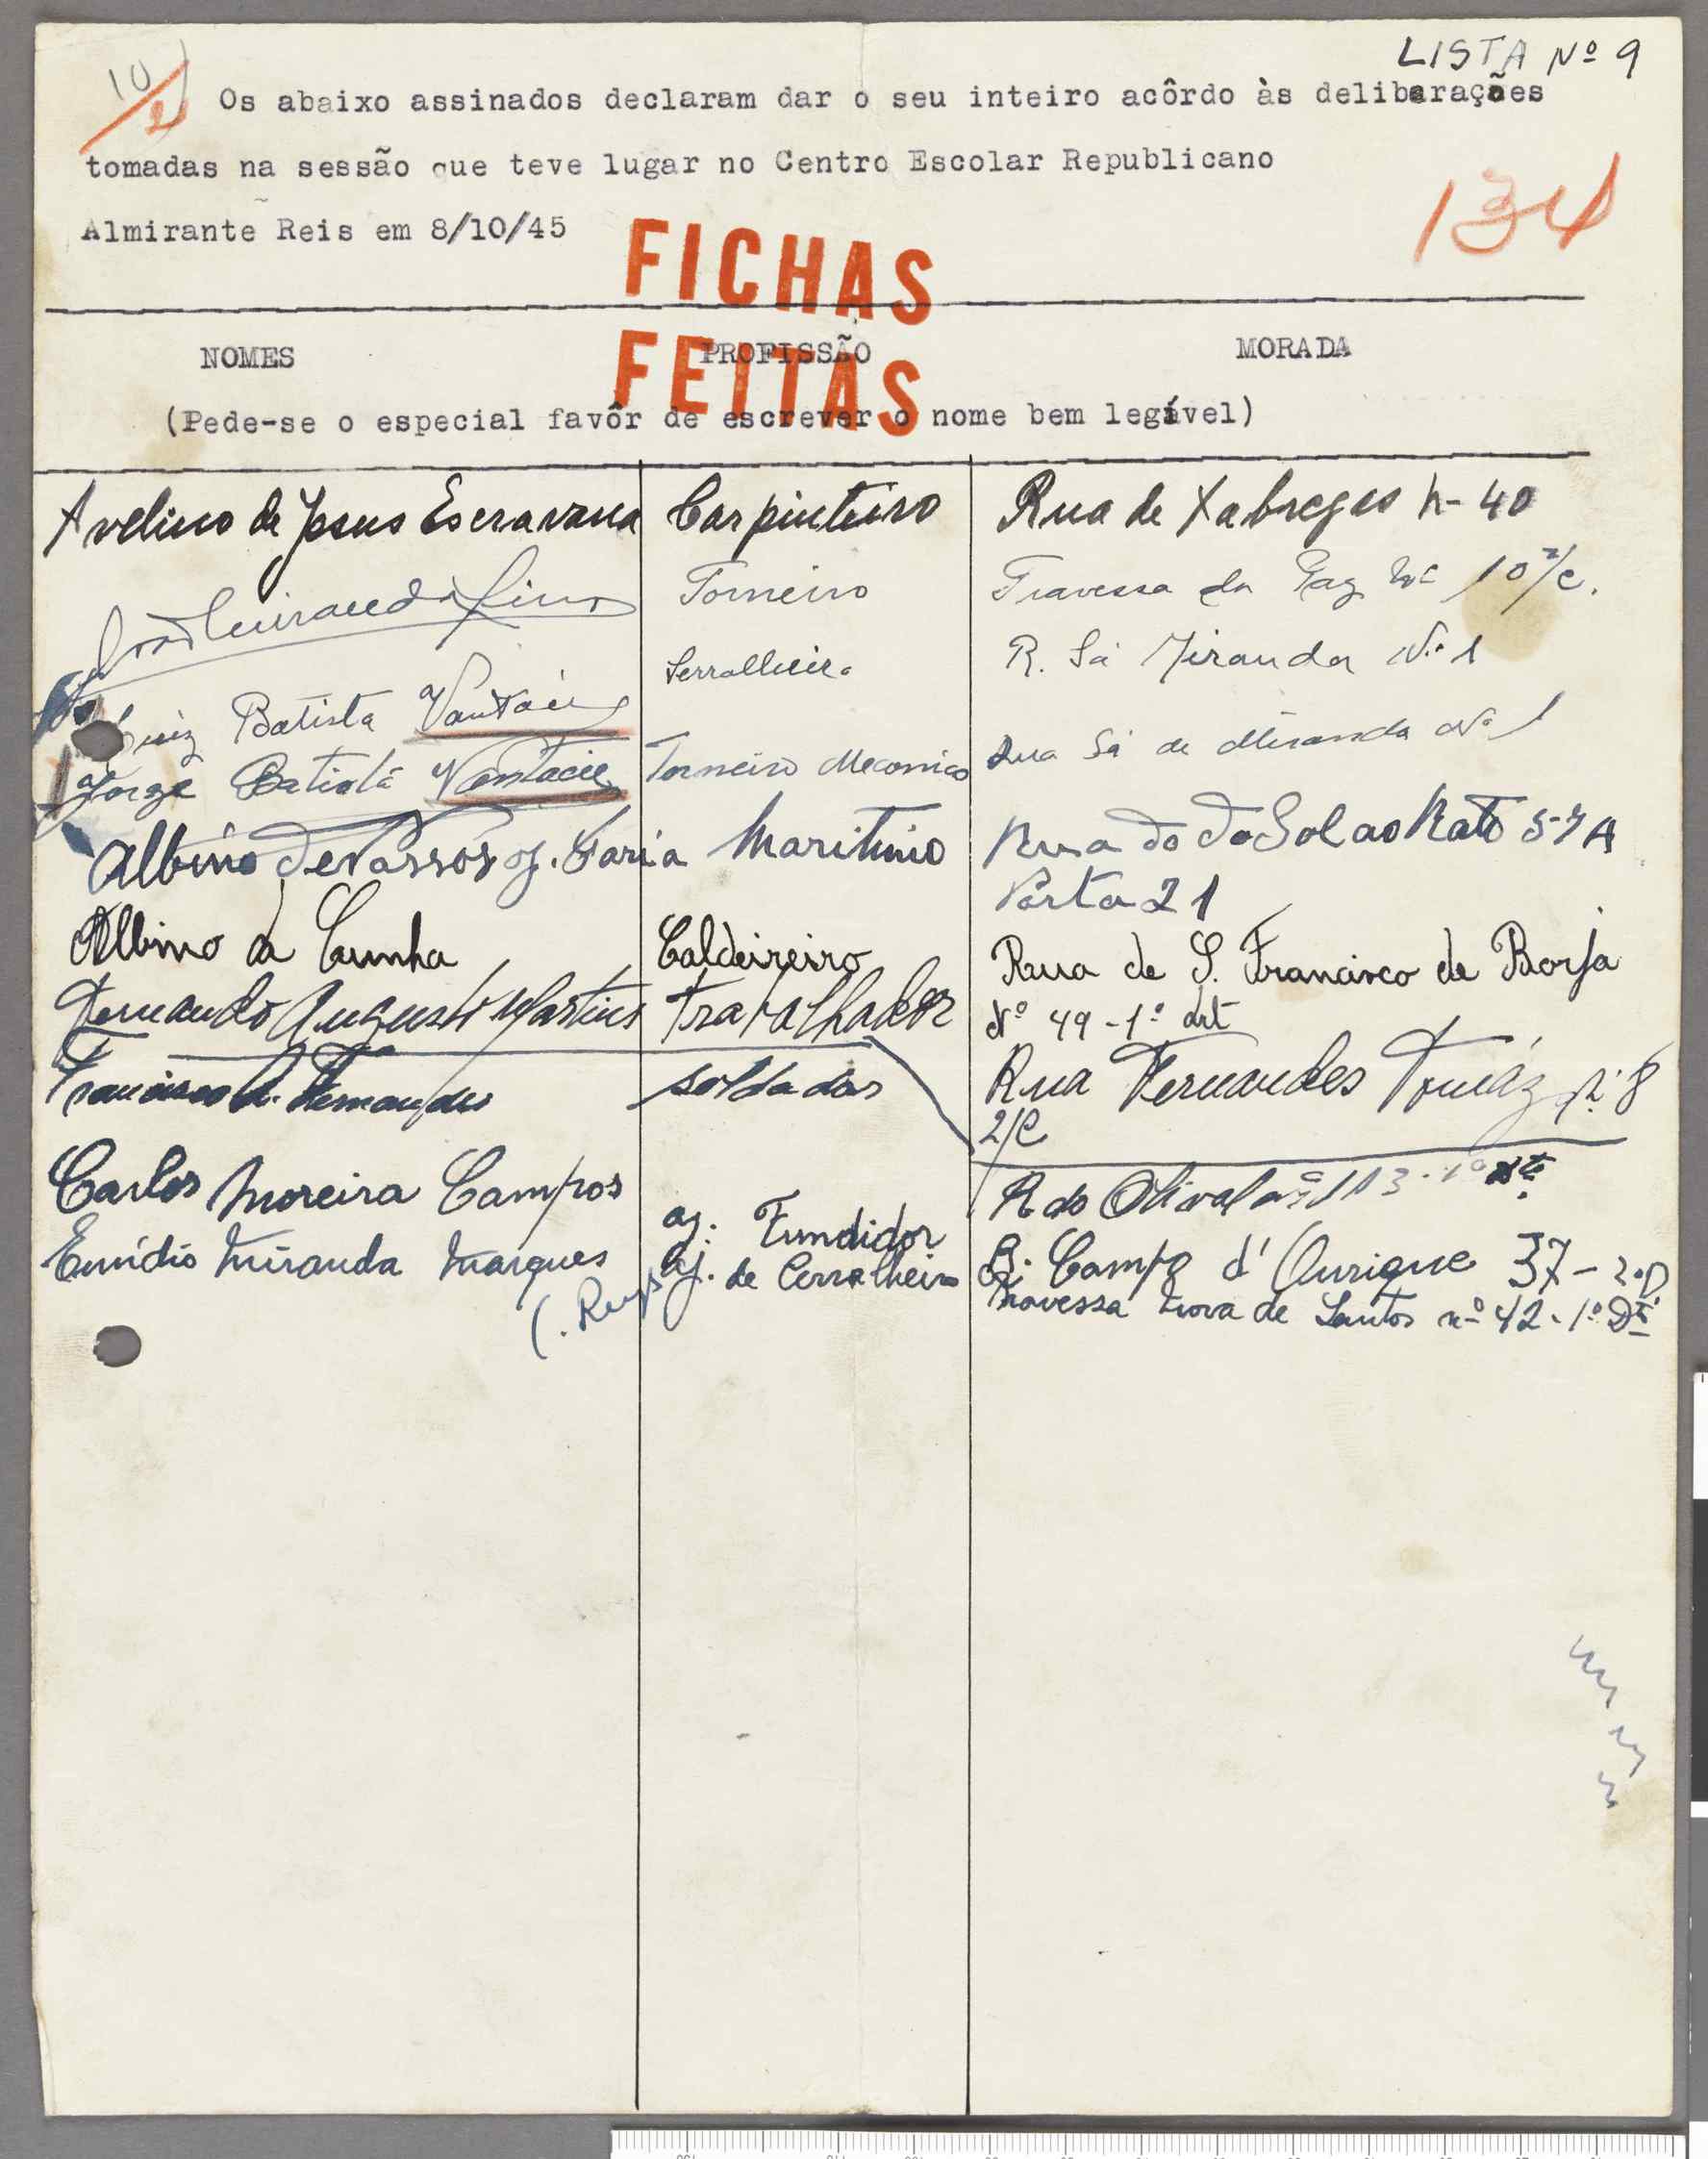 LISTA Nº 9
10
Os abaixo assinados declaram dar o seu inteiro acôrdo às deliberações
tomadas na sessão que teve lugar no Centro Escolar Republicano
134
Almirante Reis em 8/10/45
FICHAS
FEITAS
NOMES PROFISSÃO MORADA
(Pede-se o especial favôr de escrever o nome bem legível)
Avelino de Jesus Carpinteiro Rua de Xabregas n- 40
Torneiro Travessa da Paz Nº 10 r/c.
Serralheiro R. Sá Miranda Nº 1
Luiz Batista
Jorge Batista Torneiro Mecanico Rua Sá de Miranda Nº 1
Albino de Passos J. Faria Maritimo Rua do do Sol ao Rato 57 A
Porta 21
Albino da Cunha Caldeireiro Rua de S. Francisco de Borja
Nº 49-1º drt
Fernando Augusto Martins Trabalhador Rua Fernandes Tomáz nº 8
r/c
Francisco A. Fernandes soldador R do Olival nº 113-1º dtº
Carlos Moreira Campos aj. Fundidor R. Campo d'Ourique 37-2º D
Emídio Miranda Marques aj. de Cerralheiro Travessa Nova de Santos nº 42-1º Dtº